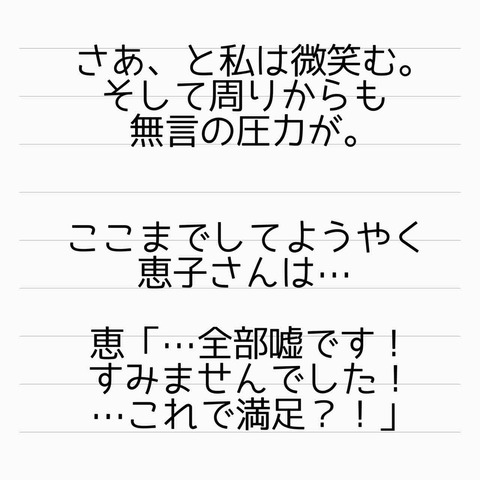 さあ、と私は微笑む。
そして周りからも
無言の圧力が。
ここまでしてようやく
恵子さんは…
恵「…全部嘘です！
すみませんでした！
…これで満足？！」